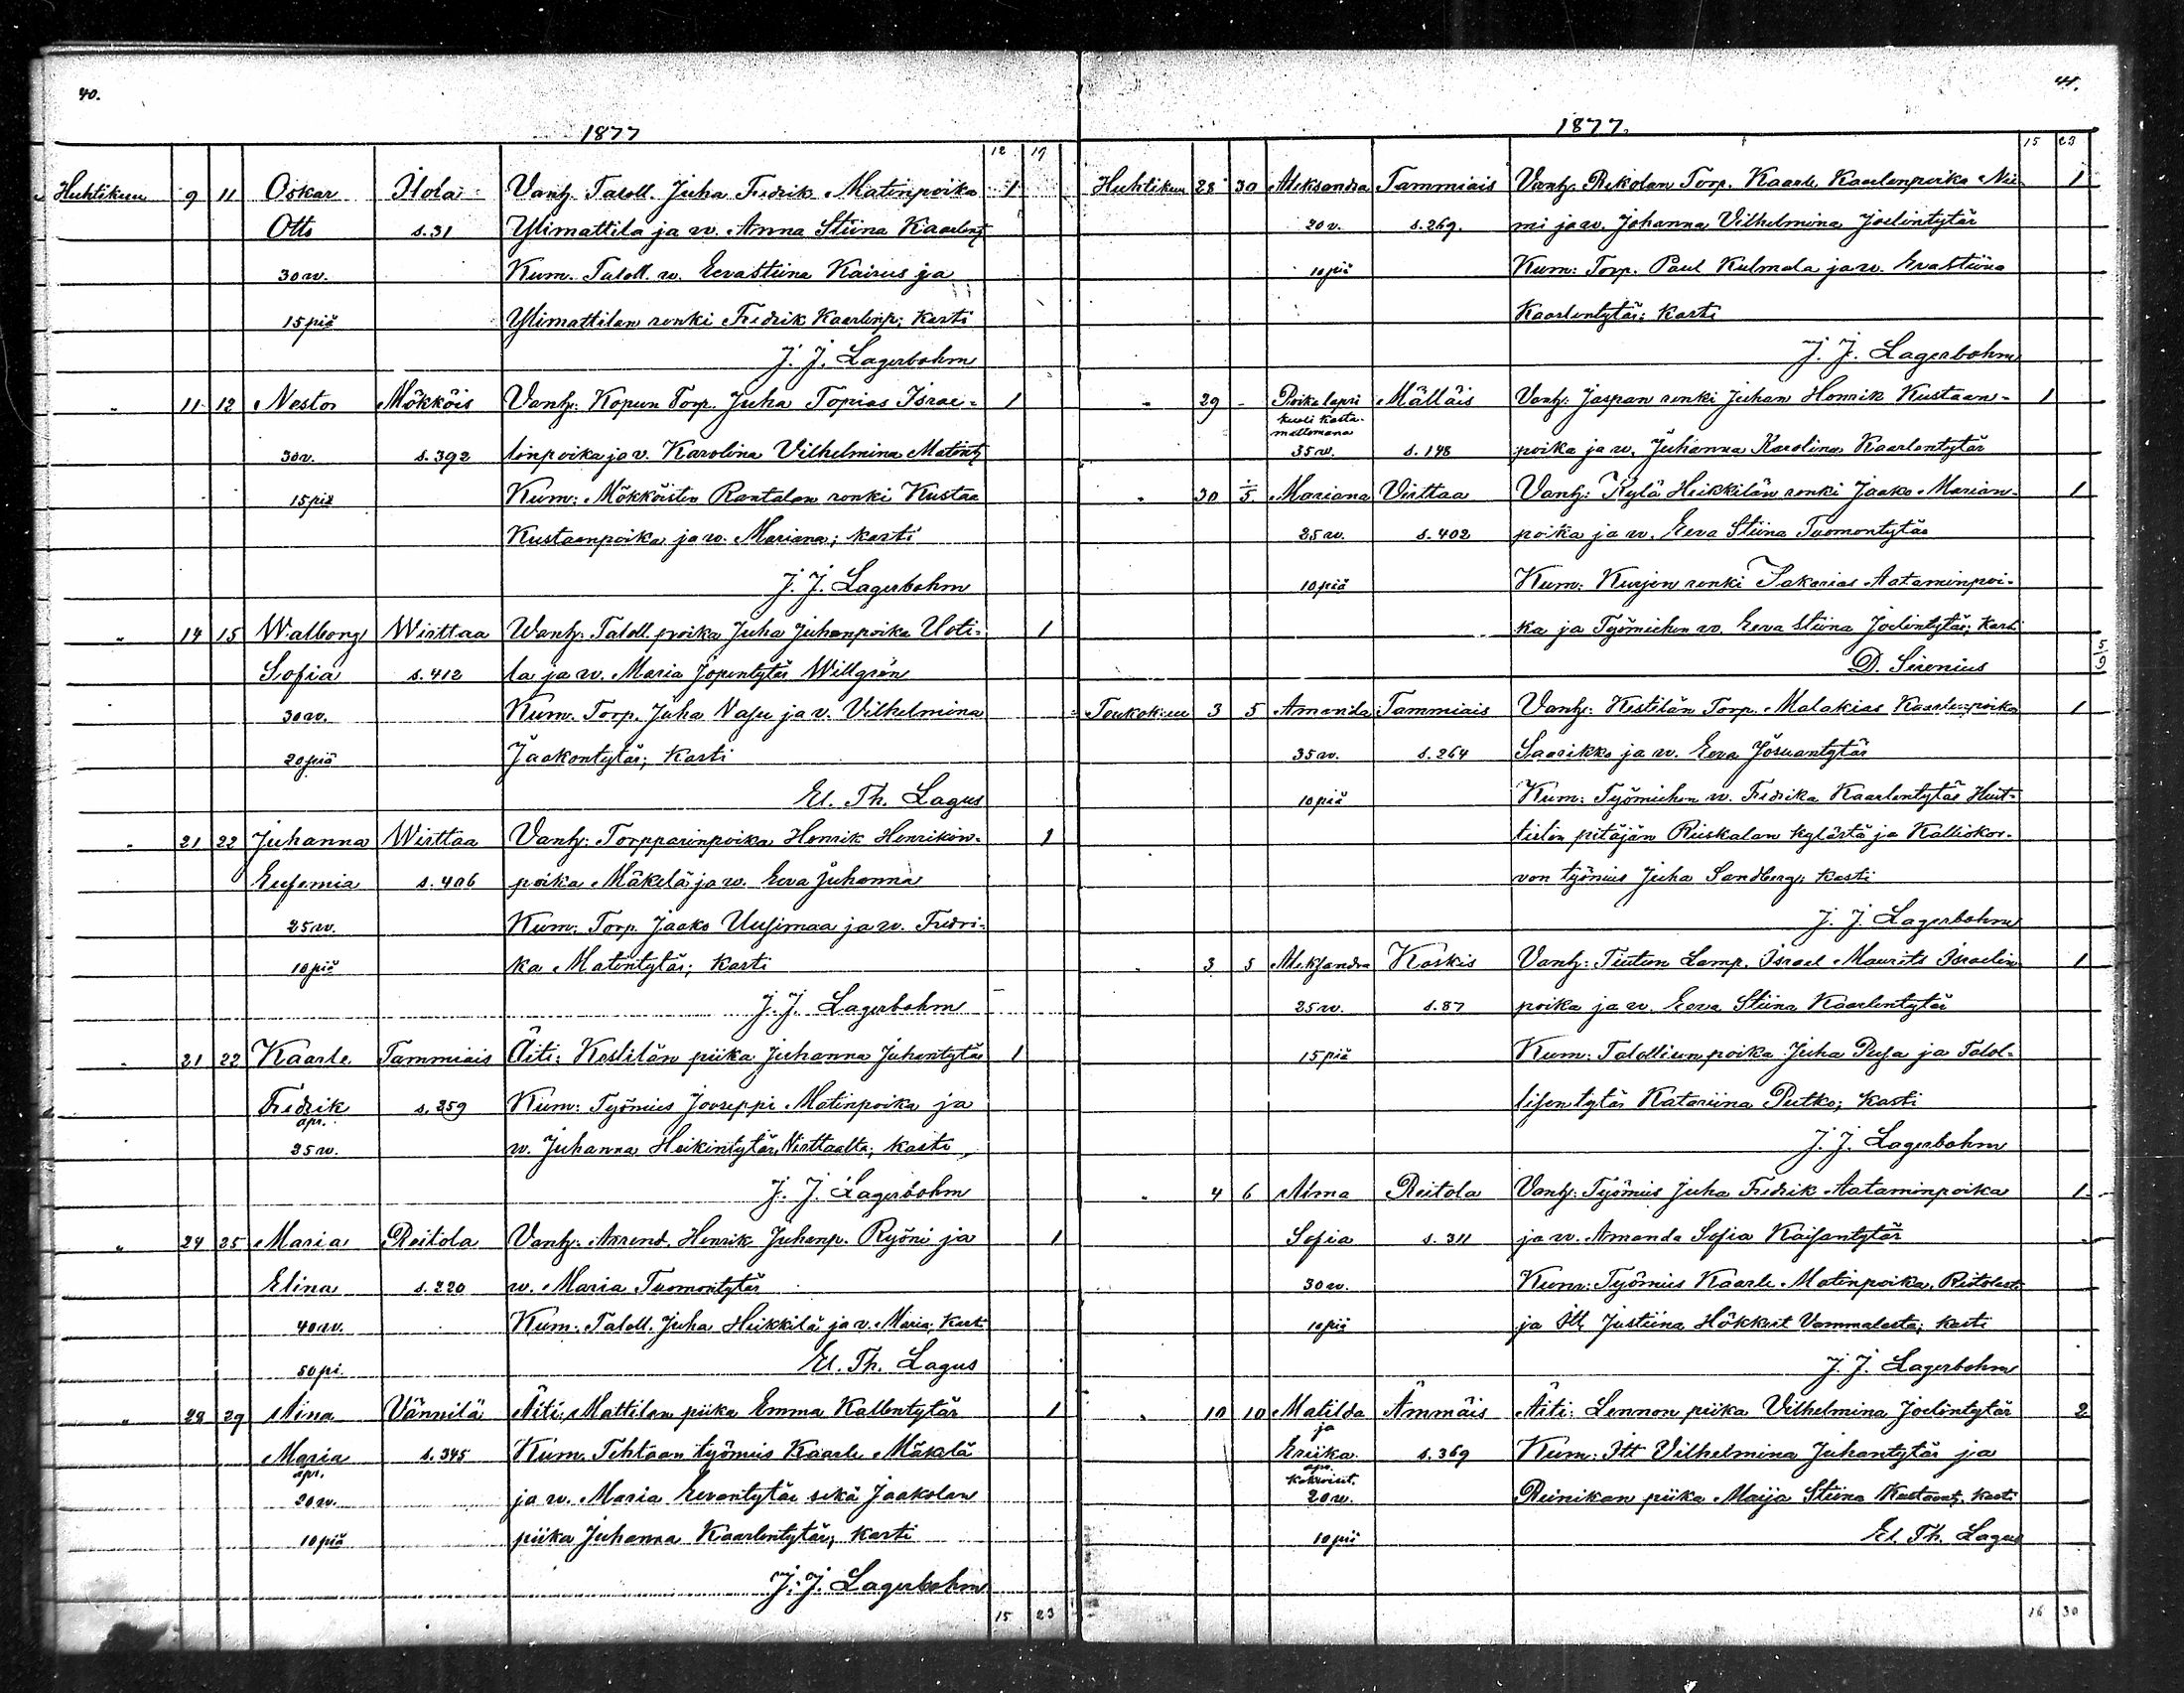 40.
1877
12 19
Huhtikuu 9 11 Oskar Ilola Vanh. Taloll. Juha Fredrik Matinpoika 1
Otto s.31 Ylimattila ja w. Anna Stiina Kaarlent.
30 w. Kum. Taloll. w. Eevastiina Kairus ja
15 piä Ylimattilan renki Fredrik Kaarlenp; kasti
J. J. Lagerbohm
" 11 12 Nestor Mökköis Vanh: Kopun Torp. Juha Topias Israe- 1
30 v. s.392 linpoika ja v. Karolina Vilhelmina Matint.
15 piä Kum: Mökköisten Rantalan renki Kustaa
Kustaanpoika ja w. Mariana; kasti
J. J. Lagerbohm
" 14 15 Walborg Wirttaa Wanh: Taloll. poika Juha Juhanpoika Uoti- 1
Sofia s. 412 la ja w. Maria Jopentytär Willgrén
30 w. Kum. Torp. Juha Vasu ja v. Vilhelmina
20 piä Jaakontytär; kasti
El. Th. Lagus
" 21 22 Juhanna Wirttaa Vanh: Torpparinpoika Henrik Henrikin- 1
Eufemia s. 406 poika Mäkelä ja w. Eeva Juhanna
25 w. Kum. Torp. Jaako Uusimaa ja w. Fredri-
10 piä ka Matintytär; kasti
J. J. Lagerbohm
" 21 22 Kaarle Tammiais Äiti: Kestilän piika Juhanna Juhantytär 1
Fredrik s. 259 Kum: Työmies Jooseppi Matinpoika ja
apr.
25 w. w. Juhanna Heikintytär Virttaalta; kasti
J. J. Lagerbohm
" 24 25 Maria Reitola Vanh: Arrend. Henrik Juhanp. Ryöni ja 1
Elina s. 220 w. Maria Tuomontytär
40 w. Kum: Taloll. Juha Heikkilä ja v. Maria; kasti
50 pi. El. Th. Lagus
" 28 29 Aina Vännilä Äiti: Mattilan piika Emma Kallentytär 1
Maria s. 345 Kum. Tehtaan työmies Kaarle Mäkelä
apr.
20 w. ja w. Maria Eevantytär sekä Jaakolan
10 piä piika Juhanna Kaarlentytär; kasti
J. J. Lagerbohm
15 23
41.
1877.
15 23
Huhtikuu 28 30 Aleksandra Tammiais Vanh. Rekolan Torp. Kaarle Kaarlenpoika Nie- 1
20 v. s.269. mi ja w. Johanna Vilhelmina Joelintytär
10 piä Kum: Torp. Paul Kulmala ja w. Evastiina
Kaarlentytär; kasti
J. J. Lagerbohm
" 29 - Poika lapsi Mälläis Vanh: Jaspan renki Juhan Henrik Kustaan- 1
kuoli kasta-
mattomana
35 w. s. 148 poika ja w. Juhanna Karolina Kaarlentytär
" 30 1/5 Mariana Virttaa Vanh: Kylä Heikkilän renki Jaako Marian- 1
25 w. s. 402 poika ja w. Eeva Stiina Tuomontytär
10 piä Kum: Kurjen renki Sakarias Aataminpoi-
ka ja Työmiehen w. Eeva Stiina Joelintytär; kasti
D. Sirenius
Toukokuu 3 5 Amanda Tammiais Vanh: Kestilän Torp. Malakias Kaarlenpoika 1
35 w. s. 264 Saarikko ja w. Eeva Josuantytär
10 piä Kum: Työmiehen w. Fredrika Kaarlentytär Huit-
tisten pitäjän Riiskalan kylästä ja Kalliokor-
von työmies Juha Sandberg; kasti
J. J. Lagerbohm
" 3 5 Aleksandra Koskis Vanh: Tiutun Lamp. Israel Maurits Israelin 1
25 w. s. 87 poika ja w. Eeva Stiina Kaarlentytär
15 piä Kum: Talollisen poika Juha Pusa ja Talol-
lisen tytär Katariina Putko; kasti
J. J. Lagerbohm
" 4 6 Alma Reitola Vanh: Työmies Juha Fredrik Aataminpoika 1
Sofia s. 311 ja w. Amanda Sofia Kaisantytär
30 w. Kum: Työmies Kaarle Matinpoika Ristolasta
10 piä ja Justiina Hökkert Vammalasta; kasti
J. J. Lagerbohm
" 10 10 Matilda Ämmäis Äiti: Lennon piika Vilhelmina Joelintytär 2
ja
Eriika s. 369 Kum: Itt Vilhelmina Juhantytär ja
apr.
kaksoiset.
20 w. Reinikan piika Maija Stiina Kustaant; kasti
10 piä El. Th. Lagus
16 30